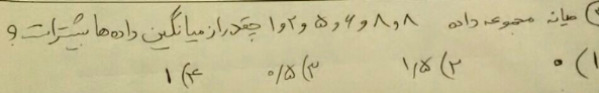 ) میانه مجموعه داده ۸ و ۸ و ۶ و ۵ و ۲ و ۱ چقدر از میانگین داده ها بیشتر است ؟
۱) ۰ ۲) ۱/۵ ۳) ۰/۵ ۴) ۱